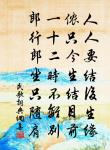 人人要結後生緣
儂只今生結目前
一十二時不離別
郎行郎坐只隨肩